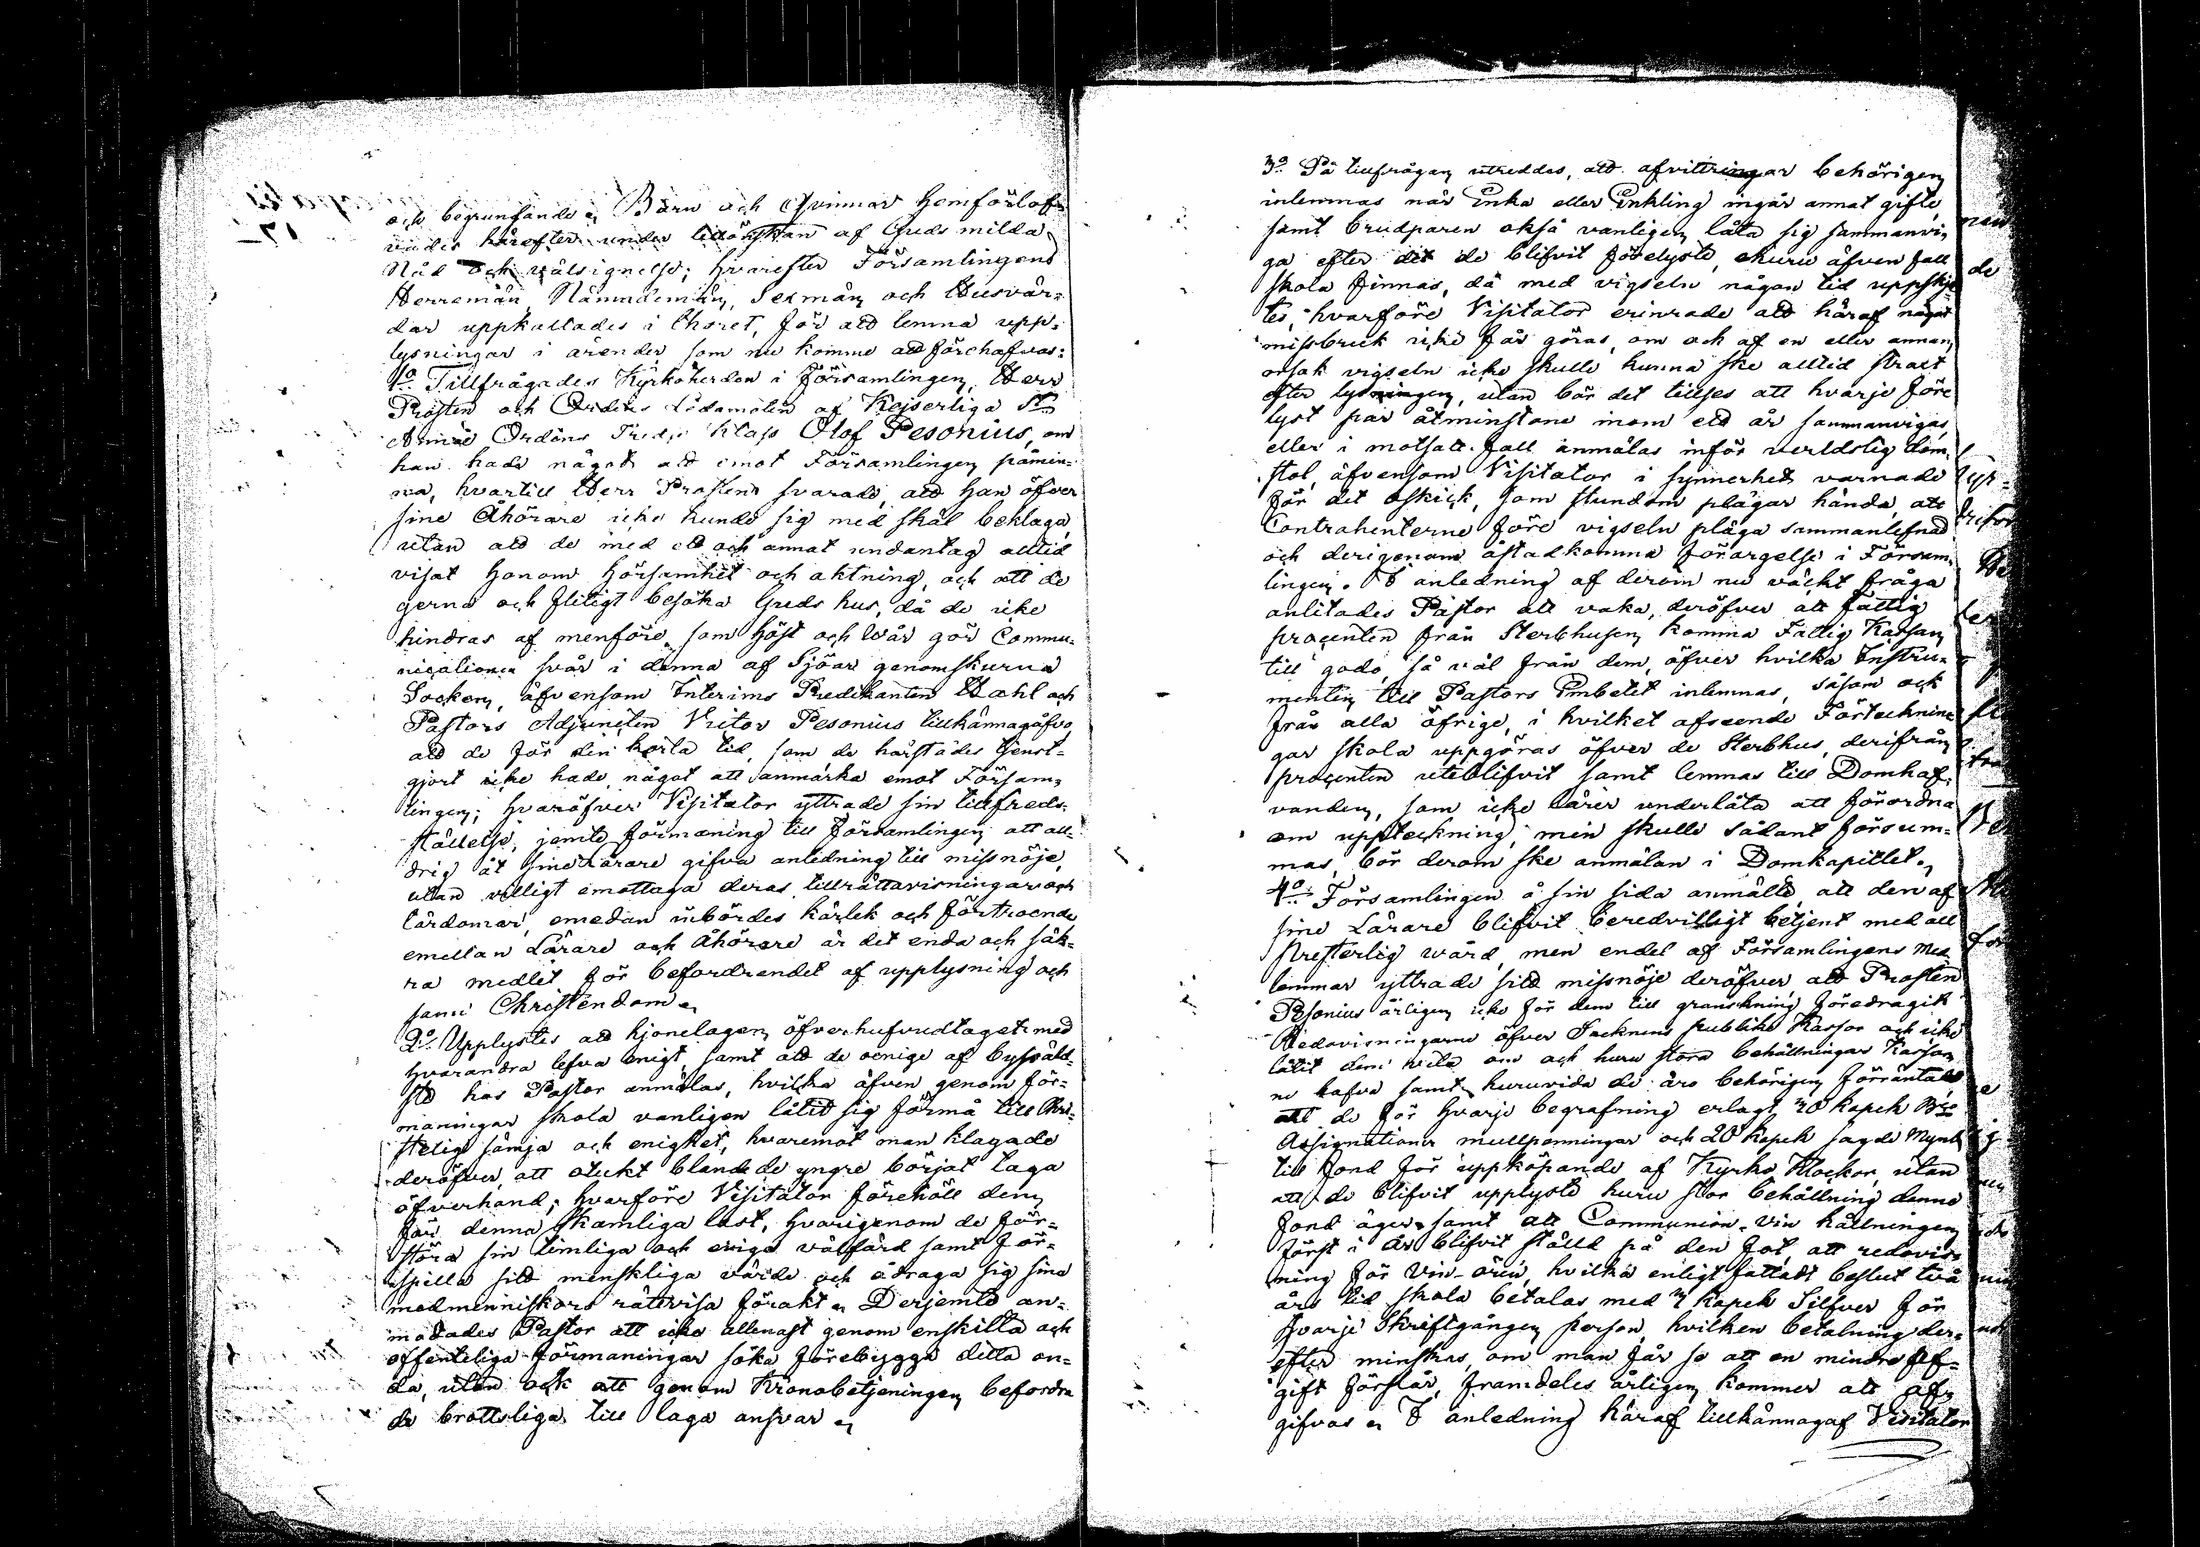 och begrunfande. Barn och Qvinnor Hemförlof-
vades härefter under tillönskan af Guds milda
Nåd och välsignelse; hvarefter Församlingens
Herremän, Nämndemän, Sexmän och Husvär-
dar uppkallades i Choret, för att lemna upp-
lysningar i ärender, som nu komme att förehafvas:
1o Tillfrågades Kyrkoherden i Församlingen, Herr
Prosten och Ordens Ledamoten af Kejserliga St
Annæ Ordens Tredje Klass Olof Pesonius, om
han hade något att emot Församlingen påmin-
na, hvartill Herr Prosten svarade, att han öfver
sine Åhörare icke kunde sig med skäl beklaga,
utan att de med ett och annat undantag alltid
visat honom hörsamhet och aktning, och att de
gerna och flitigt besöka Guds hus, då de icke
hindras af menföre, som höst och Wår gör Commu-
nicationen svår i denna af Sjöar genomskurna
Socken, äfvensom Interims Predikanten Hahl och
Pastors Adjuncten Victor Pesonius tillkännagåfvo
att de för den korta tid, som de härstädes tjenst-
gjort icke hade något att anmärka emot Försam-
lingen; hvaröfver Visitator yttrade sin tillfreds-
ställelse, jemte förmaning till Församlingen att al-
drig åt sine Lärare gifva anledning till missnöje,
utan villigt emottaga deras tillrättavisningar och
lärdomar, emedan inbördes kärlek och förtroende
emellan Lärare och Åhörare är det enda och säk-
ra medlet för befordrandet af upplysning och
sann Christendom.
2o Upplystes att hjonelagen öfverhufvudtaget med
hvarandra lefva enigt, samt att de oenige af bysväld-
ste hos Pastor anmälas, hvilka äfven genom för-
maningar skola vanligen låtit sig förmå till Chri-
stelig sämja och enighet, hvaremot man klagade
deröfver, att otukt bland de yngre börjat taga
öfverhand; hvarföre Visitator förehöll dem
för denna skamliga last, hvarigenom de för-
störa sin timliga och eviga välfärd samt för-
spilla sitt menskliga värde och ådraga sig sina
medmenniskors rättvisa förakt. Derjemte an-
modades Pastor att icke allenast genom enskilta och
offenteliga förmaningar söka förebygga detta on-
da, utan ock att genom Kronobetjeningen befordra
de brottsliga till laga ansvar.
3o På tillfrågan utreddes, att afvittringar behörigen
inlemnas når Enka eller Enkling ingår annat gifte,
samt brudparen också vanligen låta sig sammanvi-
ga efter det de blifvit förelyste, ehuru äfven fall
skola finnas, då med vigseln någon tid uppskju-
tes, hvarföre Visitator erinrade att häraf något
missbruk icke får göras, om och af en eller annan
orsak vigseln icke skulle kunna ske alltid straxt
efter lysningen, utan bör det tillses att hvarje före
lyst par åtminstone inom ett år sammanvigas,
eller i motsatt fall anmälas inför verldslig dom-
stol, äfvensom Visitator i synnerhet varnade
för det oskick, som stundom plägar hända, att
Contrahenterne före vigseln pläga sammanlefnad
och derigenom åstadkomma förargelse i Försam-
lingen. I anledning af derom nu väckt fråga
anlitades Pastor att vaka, deröfver att fattig
procenten från Sterbhusen komma Fattig Kassan
till godo, så väl från dem, öfver hvilka Instru-
menten till Pastors Embetet inlemnas, såsom ock
från alla öfrige, i hvilket afseende Förteckning-
gar skola uppgöras öfver de Sterbhus, derifrån
procenten uteblifvit samt lemnas till Domhaf-
vanden, som icke lärer underlåta att förordna
om uppteckning; men skulle sådant försum-
mas, bör derom ske anmälan i Domkapitlet.
4o Församlingen å sin sida anmälte, att den af
sine Lärare blifvit beredvilligt betjent med all
Presterlig wård, men endel af Församlingens Med
lemmar yttrade sitt missnöje deröfver, att Prosten
Pesonius årligen icke för dem till granskning föredragit
Redovisningarne öfver Socknens publike Kassor och icke
låtit dem veta om och huru stora behållningar Kassor
ne hafva samt huruvida de äro behörigen förräntade
att de för hvarje begrafning erlagt 20 kopek Bco
Assignationer mullpenningar och 20 kopek sagde Mynt
till fond för uppköpande af Kyrko Klockor, utan
att de blifvit upplyste huru stor behållning denne
fond äger samt att Communion-Vin hållningen
först i år blifvit ställd på den fot, att redovis-
ning för Vin-ören, hvilka enligt fattadt beslut två
års tid skola betalas med 4 kopek Silfver för
hvarje Skriftgången person, hvilken betalning der-
efter minskas, om man får se att en mindre af-
gift förslår, framdeles årligen kommer att af-
gifvas. I anledning häraf tillkännagaf Visitator